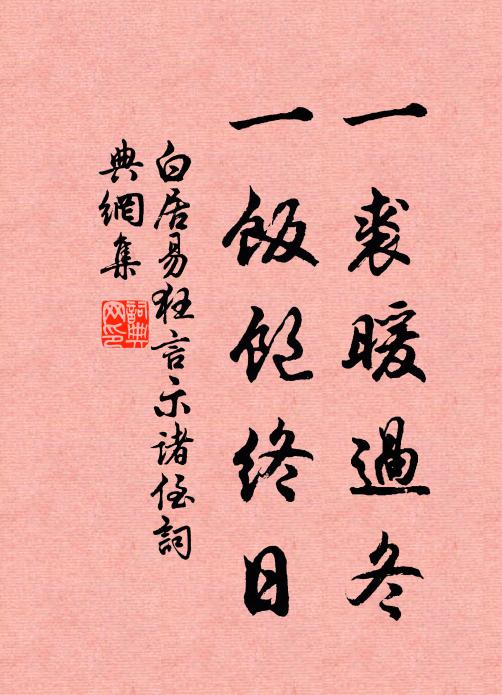 一裘暖過冬
一飯飽終日
白居易狂言示諸侄詞
典網集
詞典網印